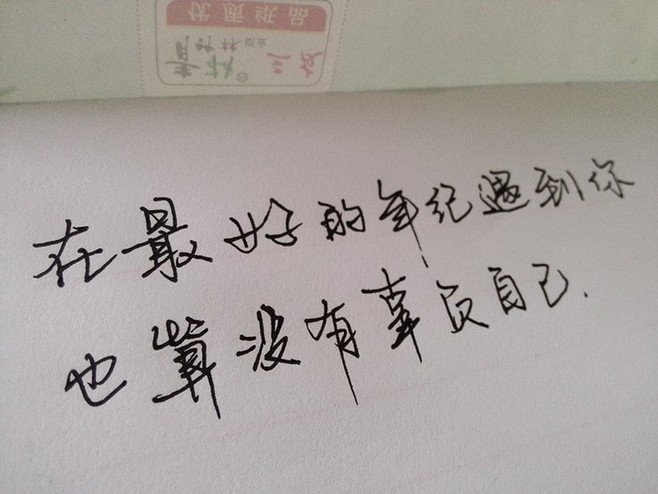 优质纸品
在最好的年纪遇到你
也算没有辜负自己.